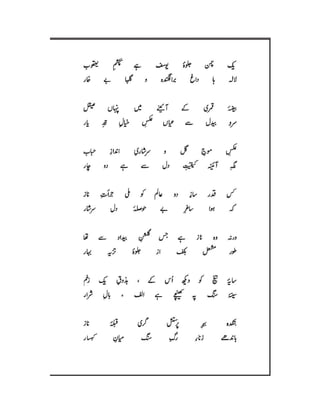 یک چمن جلوۂ یوسف ہے بہ چشمِ یعقوب
لالہ ہا داغ برافگندہ و گلہا بے خار
بیضۂ قمری کے آئینے میں پنہاں صیقل
سروِ بیدل سے عیاں عکسِ خیالِ قدِ یار
عکسِ موجِ گل و سرشاریِ اندازِ حباب
نگہ آئینۂ کیفیتِ دل سے ہے دو چار
کس قدر سازِ دو عالم کو ملی جرأتِ ناز
کہ ہوا ساغرِ بے حوصلۂ دل سرشار
ورنہ وہ ناز ہے جس گلشنِ بیداد سے تھا
طور مشعل بکف از جلوۂ تنزیہِ بہار
سایۂ تیغ کو دیکھ اُس کے بہ ذوقِ یک زخم
سینۂ سنگ پہ کھینچے ہے الف بالِ شرار
بتکدہ بہرِ پرستش گریِ قبلۂ ناز
باندھے زنّارِ رگِ سنگ میانِ کہسار